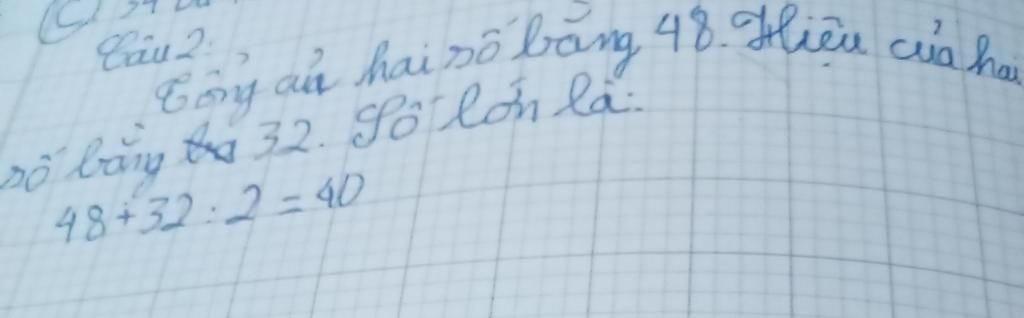 Câu 2:
Tổng củ hai số bằng 48. Hiệu của hai
số bằng 32. Số lớn là:
48+32:2=40